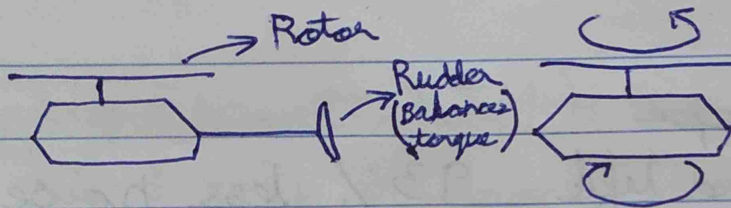 Rotor
Rudder
(Balances
torque)